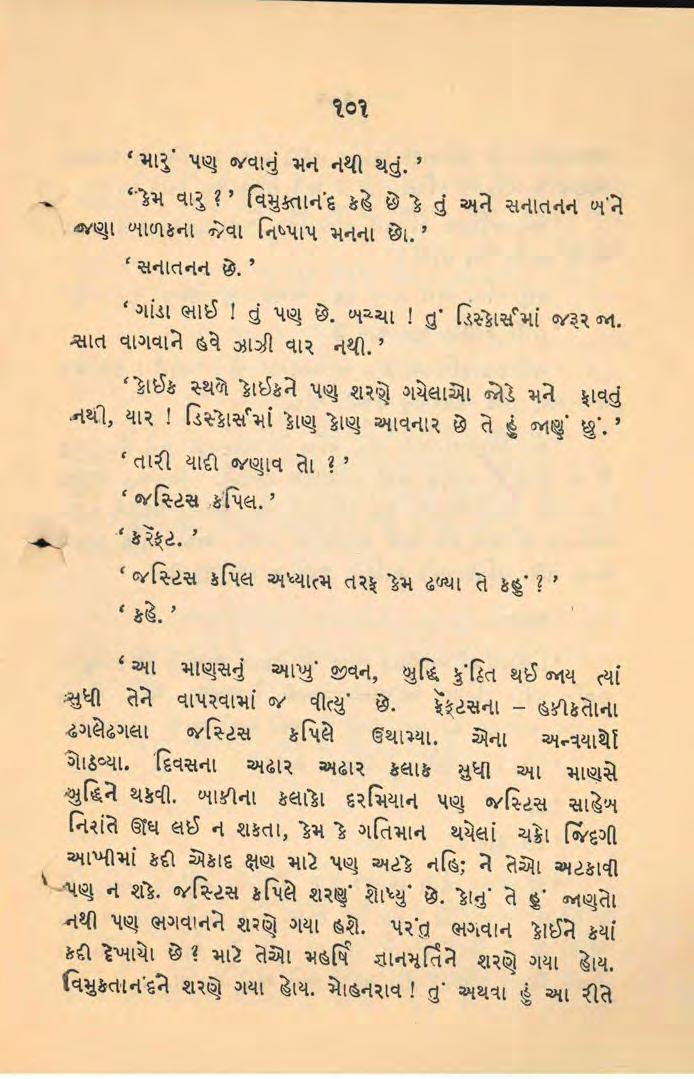 ૧૦૧
‘મારું પણ જવાનું મન નથી થતું.’
‘કેમ વારુ ?’ વિમુક્તાનંદ કહે છે કે તું અને સનાતનન બંને
જણા બાળકના જેવા નિષ્પાપ મનના છો.’
‘સનાતનન છે.’
‘ગાંડા ભાઈ ! તું પણ છે. બચ્ચા ! તું ડિસ્કોર્સમાં જરૂર જા.
સાત વાગવાને હવે ઝાઝી વાર નથી.’
‘કોઈક સ્થળે કોઈકને પણ શરણે ગયેલાઓ જોડે મને ફાવતું
નથી, યાર ! ડિસ્કોર્સમાં કોણ કોણ આવનાર છે તે હું જાણું છું.’
‘તારી યાદી જણાવ તો ?’
‘જસ્ટિસ કપિલ.’
‘કરૅક્ટ.’
‘જસ્ટિસ કપિલ અધ્યાત્મ તરફ કેમ ઢળ્યા તે કહું ?’
‘કહે.’
‘આ માણસનું આખું જીવન, બુદ્ધિ કુંઠિત થઈ જાય ત્યાં
સુધી તેને વાપરવામાં જ વીત્યું છે. ફૅક્ટસના – હકીકતોના
ઢગલેઢગલા જસ્ટિસ કપિલે ઉથામ્યા. એના અન્વયાર્થો
ગોઠવ્યા. દિવસના અઢાર અઢાર કલાક સુધી આ માણસે
બુદ્ધિને થકવી. બાકીના કલાકો દરમિયાન પણ જસ્ટિસ સાહેબ
નિરાંતે ઊંઘ લઈ ન શકતા, કેમ કે ગતિમાન થયેલાં ચક્રો જિંદગી
આખીમાં કદી એકાદ ક્ષણ માટે પણ અટકે નહિ; ને તેઓ અટકાવી
પણ ન શકે. જસ્ટિસ કપિલે શરણું શોધ્યું છે. કોનું તે હું જાણતો
નથી પણ ભગવાનને શરણે ગયા હશે. પરંતુ ભગવાન કોઈને કયાં
કદી દેખાયો છે ? માટે તેઓ મહર્ષિ જ્ઞાનમૂર્તિને શરણે ગયા હોય.
વિમુકતાનંદને શરણે ગયા હોય. મોહનરાવ ! તું અથવા હું આ રીતે